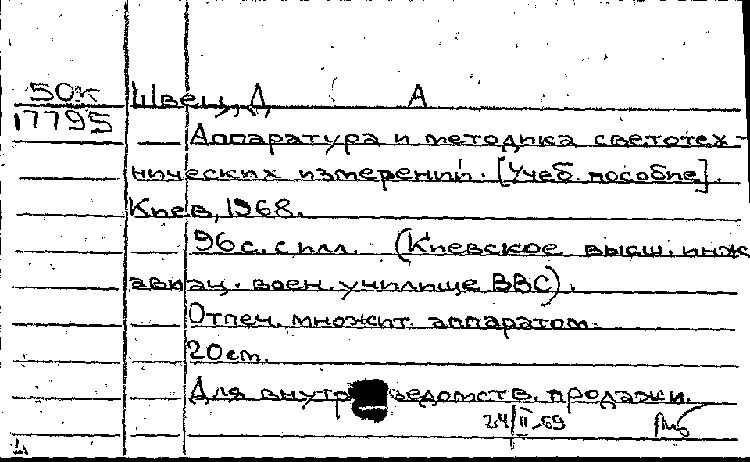 50к Швец, Д А
17795
Аппаратура и методика светотех-
нических измерений. [Учеб. пособие].
Киев, 1968.
96 с. с илл. (Киевское высш. инж
авиац. воен. училище ВВС).
Отпеч. множит. аппаратом.
20 см.
Для внутр ведомств. продажи.
24/II-69